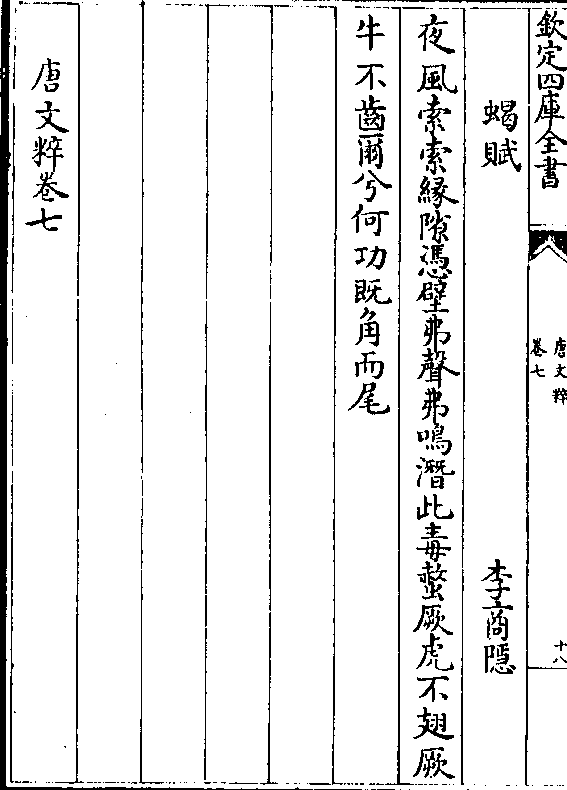 欽定四庫全書
唐文粹
卷七
十八
蝎賦
李商隱
夜風索索緣隙憑壁弗聲弗鳴潛此毒螫厥虎不翅厥
牛不齒爾兮何功既角而尾
唐文粹卷七